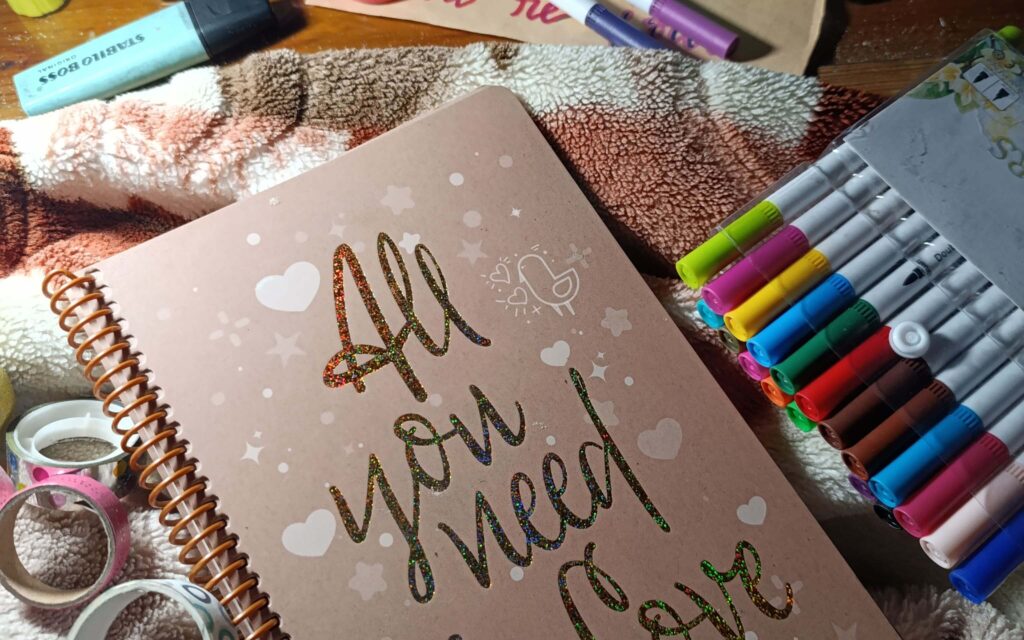 STABILO BOSS
ORIGINAL
All
you
need
Love